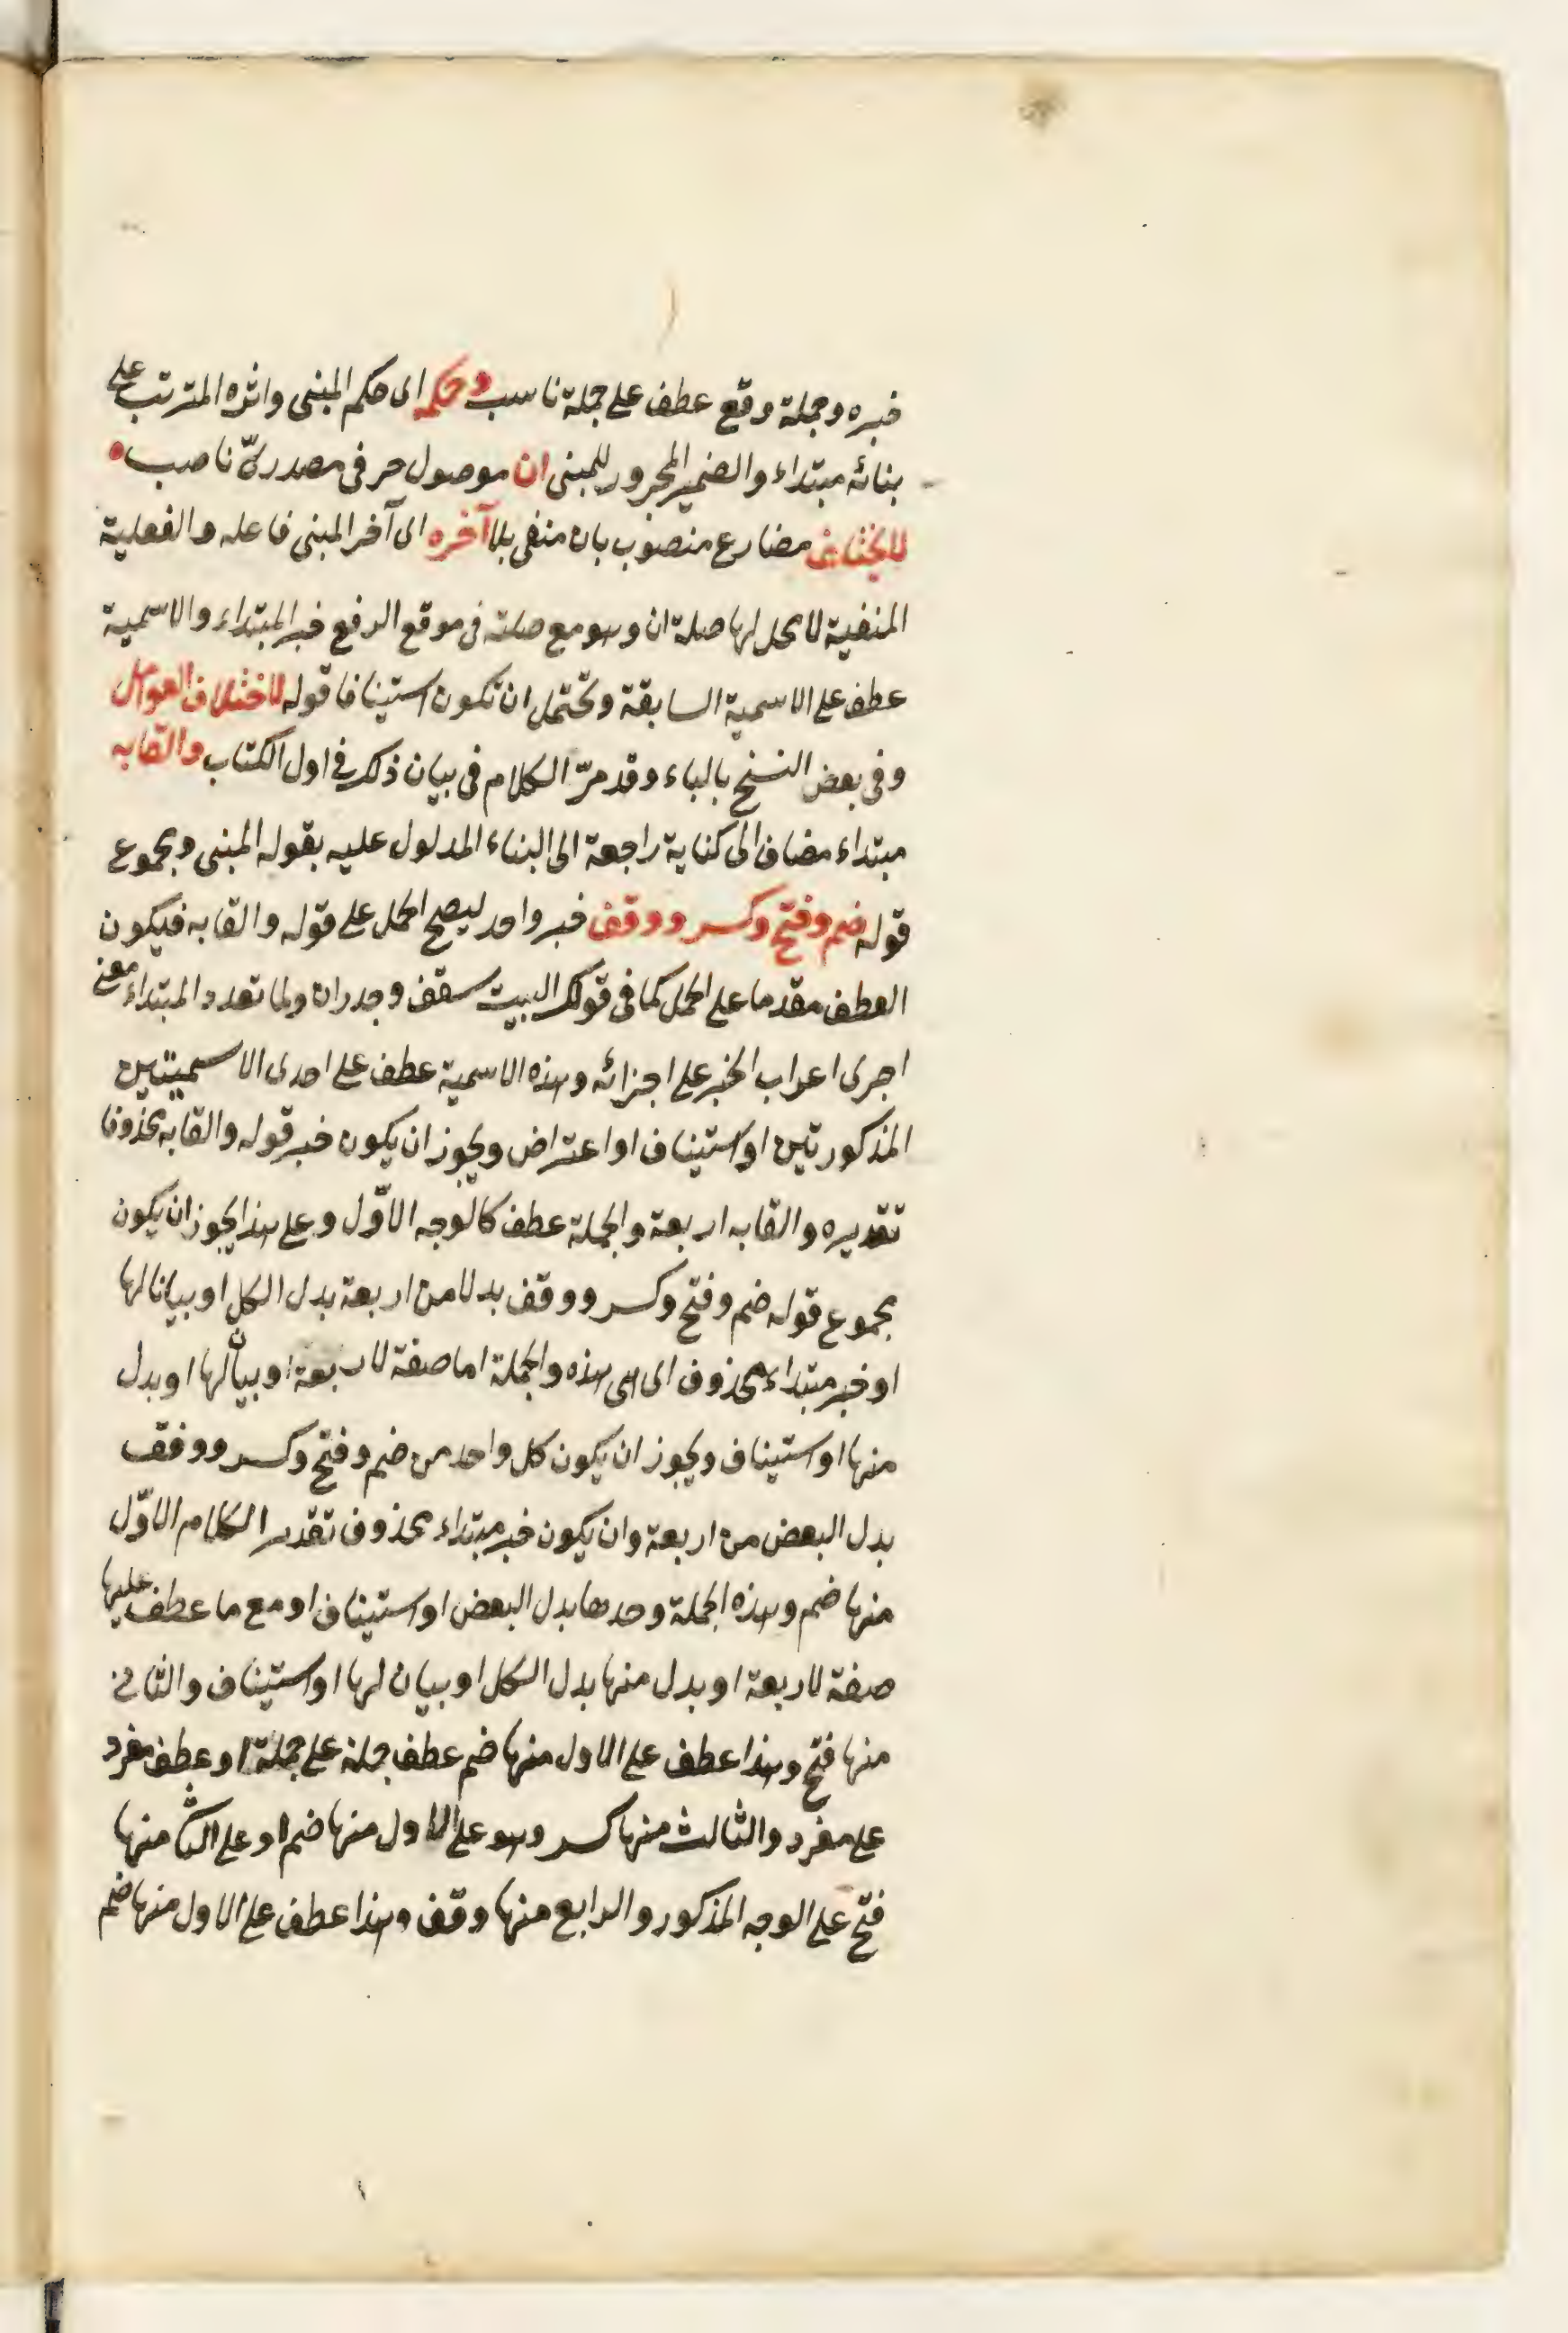 خبره وجملة وقع عطف على جملة ناسب وحكمه اى حكم المبنى واثره المترتب على
بنائه مبتداء والضمير المجرور للمبنى ان موصول حرفى مصدرىّ ناصب
لا يختلف مضارع منصوب بان منفى بلا آخره اى آخر المبنى فاعله والفعلية
المنفية لا محل لها صلة ان وهو مع صلته فى موقع الرفع خبر المبتداء والاسمية
عطف على الاسمية السابقة وتحتمل ان تكون استينافا قوله لاختلاف العوامل
وفى بعض النسخ بالباء وقد مرّ الكلام فى بيان ذلك فى اول الكتاب والقابه
مبتداء مضاف الى كناية راجعة الى البناء المدلول عليه بقوله المبنى ومجموع
قوله ضم وفتح وكسر ووقف خبر واحد ليصح الحمل على قوله والقابه فيكون
العطف مقدما على الحمل كما فى قولك البيت سقف وجدران ولما تعدد المبتداء معنى
اجرى اعراب الخبر على اجزائه وهذه الاسمية عطف على احدى الاسميتين
المذكورتين او استيناف او اعتراض ويجوز ان يكون خبر قوله والقابه محذوفا
تقديره والقابه اربعة والجملة عطف كالوجه الاوّل وعلى هذا يجوز ان يكون
مجموع قوله ضم وفتح وكسر ووقف بدلا من اربعة بدل الكل او بيانا لها
او خبر مبتداء محذوف اى هى هذه والجملة اما صفة لاربعة او بيان لها او بدل
منها او استيناف ويجوز ان يكون كل واحد من ضم وفتح وكسر ووقف
بدل البعض من اربعة وان يكون خبر مبتداء محذوف تقدير الكلام الاوّل
منها ضم وهذه الجملة وحدها بدل البعض او استيناف او مع ما عطف عليها
صفة لاربعة او بدل منها بدل الكل او بيان لها او استيناف والثانى
منها فتح وهذا عطف على الاول منها ضم عطف جملة على جملة او عطف مفرد
على مفرد والثالث منها كسر وهو على الاول منها ضم او على الثا منها
فتح على الوجه المذكور والرابع منها وقف وهذا عطف على الاول منها ضم